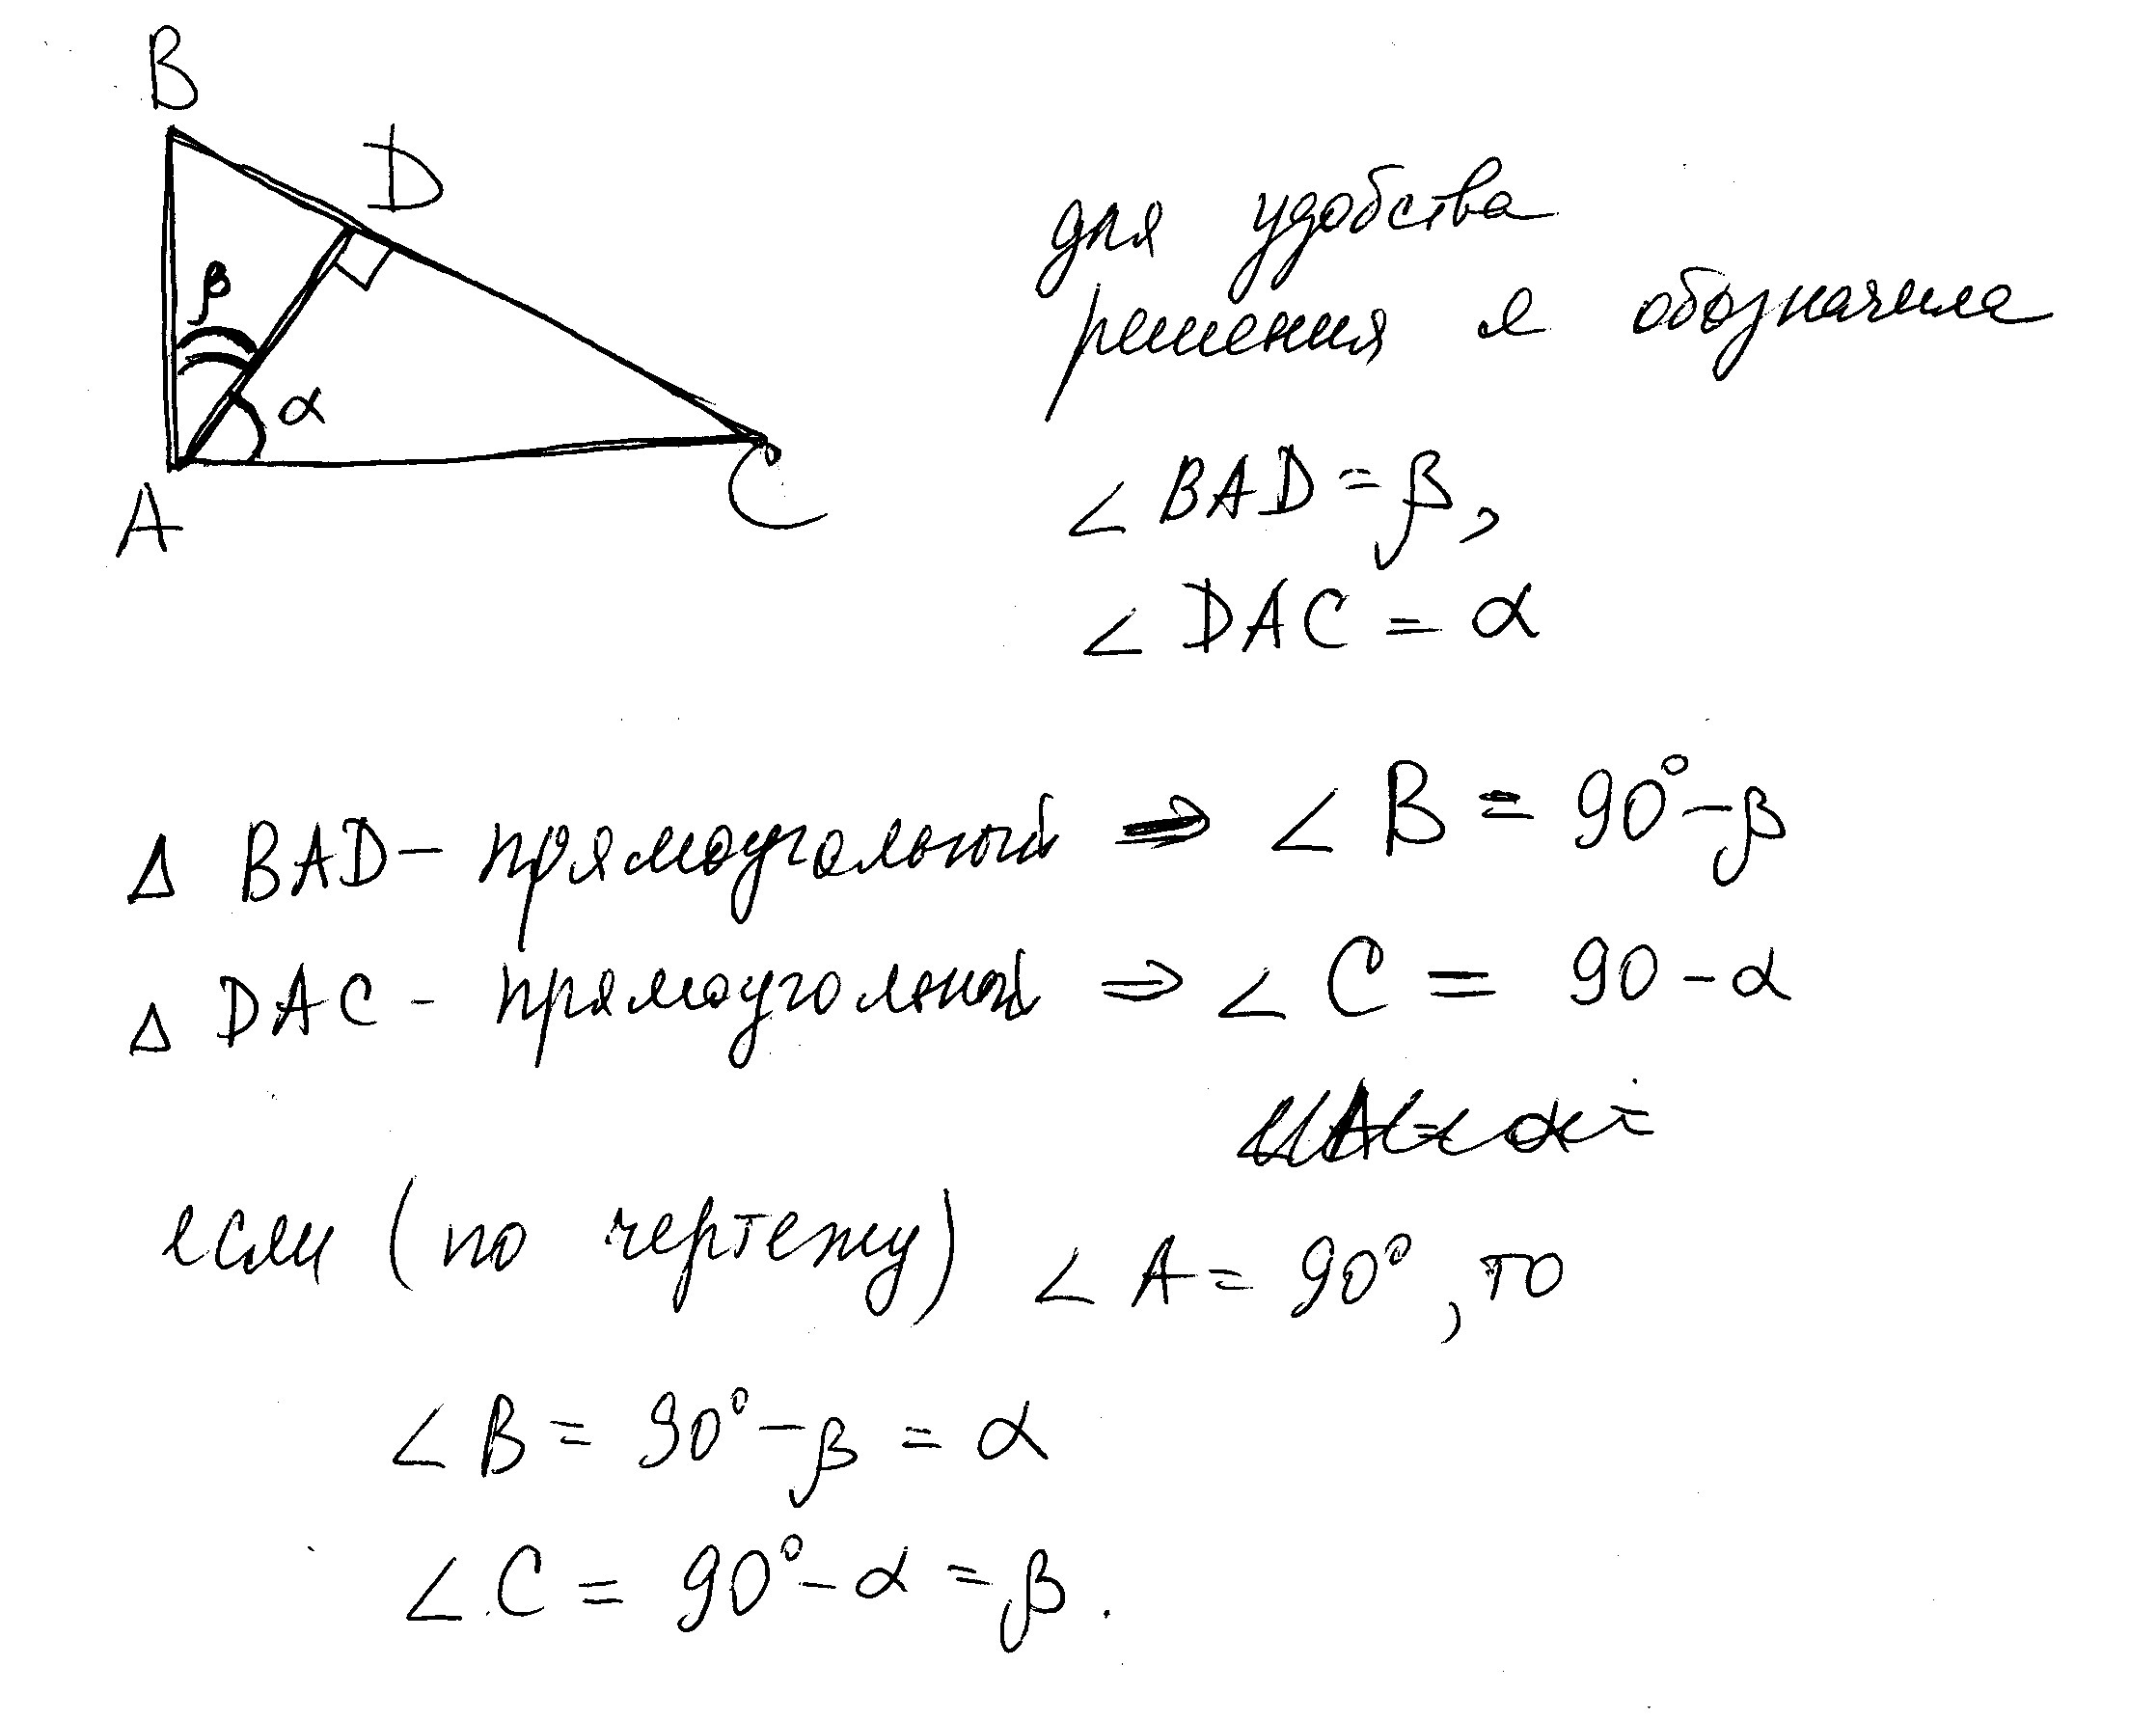 B
D
β
α
A
C
для удобства
решения я обозначила
∠ BAD = β,
∠ DAC = α
Δ BAD - прямоугольный ⇒ ∠ B = 90° - β
Δ DAC - прямоугольный ⇒ ∠ C = 90 - α
если (по чертежу) ∠ A = 90°, то
∠ B = 90° - β = α
∠ C = 90° - α = β.